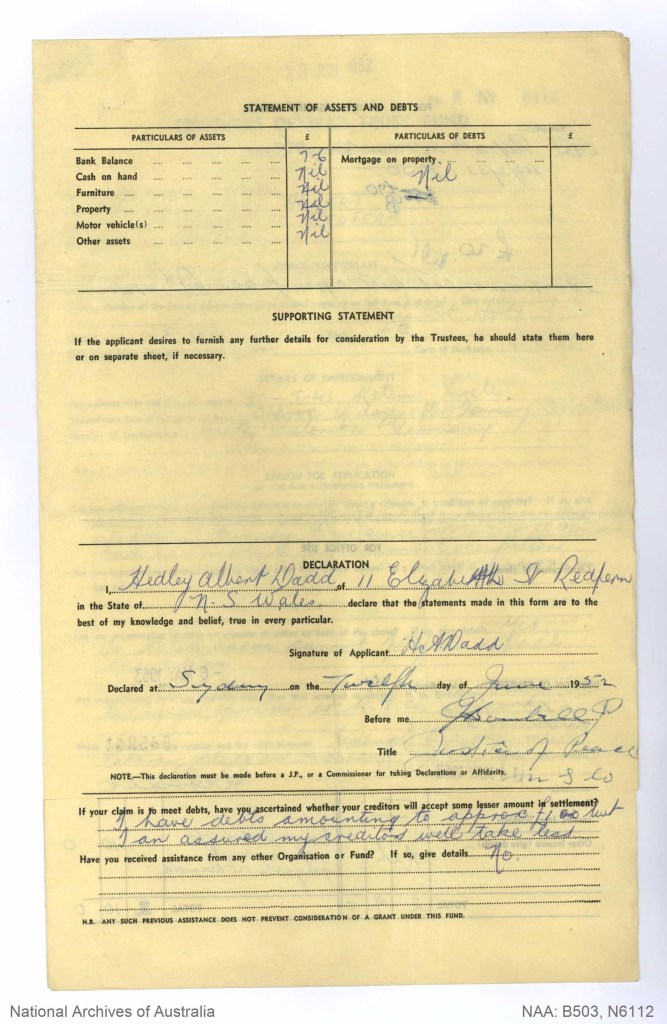 STATEMENT OF ASSETS AND DEBTS
PARTICULARS OF ASSETS £ PARTICULARS OF DEBTS £
Bank Balance .... .... .... .... .... 7-6 Mortgage on property .... .... .... ....
Cash on hand .... .... .... .... Nil Nil
Furniture .... .... .... .... .... Nil
Property .... .... .... .... .... Nil
Motor vehicle(s) .... .... .... .... Nil
Other assets .... .... .... .... Nil
SUPPORTING STATEMENT
If the applicant desires to furnish any further details for consideration by the Trustees, he should state them here
or on separate sheet, if necessary.
DECLARATION
I, Hedley Albert Dadd of 11 Elizabeth St Redfern
in the State of N. S Wales declare that the statements made in this form are to the
best of my knowledge and belief, true in every particular.
Signature of Applicant H A Dadd
Declared at Sydney on the Twelfth day of June 1952
Before me JP
Title Justice of Peace
NOTE.—This declaration must be made before a J.P., or a Commissioner for taking Declarations or Affidavits.
If your claim is to meet debts, have you ascertained whether your creditors will accept some lesser amount in settlement?
I have debts amounting to approx but
I an assured my creditors will take less
Have you received assistance from any other Organisation or Fund? If so, give details No.
N.B. ANY SUCH PREVIOUS ASSISTANCE DOES NOT PREVENT CONSIDERATION OF A GRANT UNDER THIS FUND.
National Archives of Australia NAA: B503, N6112